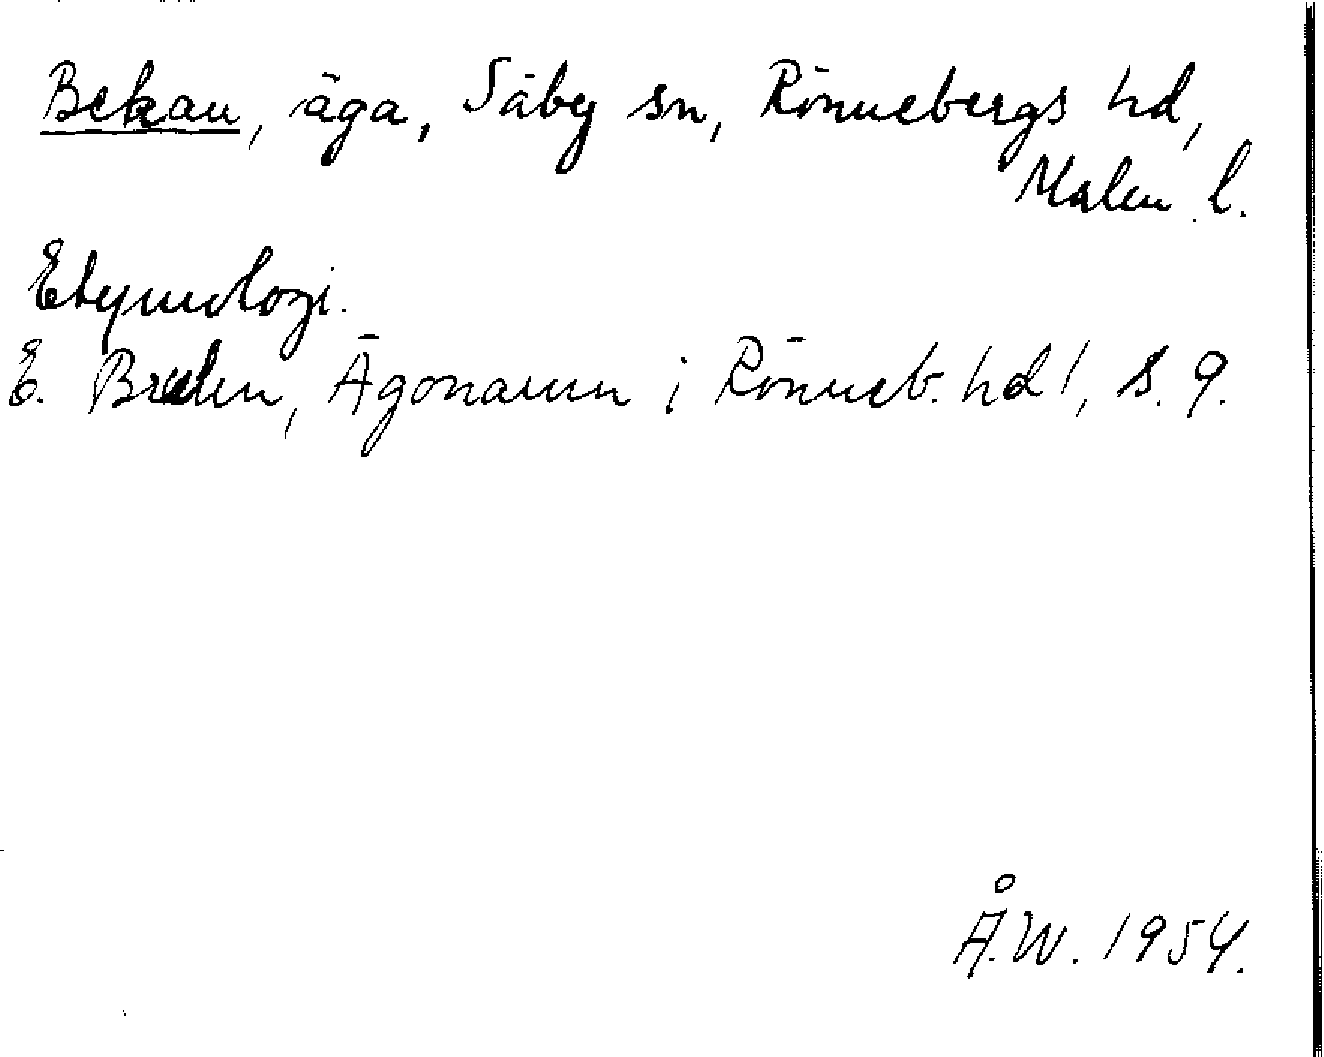 Bekan, äga, Säby sn, Rönnebergs hd,
Malm. l.
Etymologi.
E. Bruhn, Ägonamn i Rönneb. hd 1, s. 9.
Å.W. 1954.